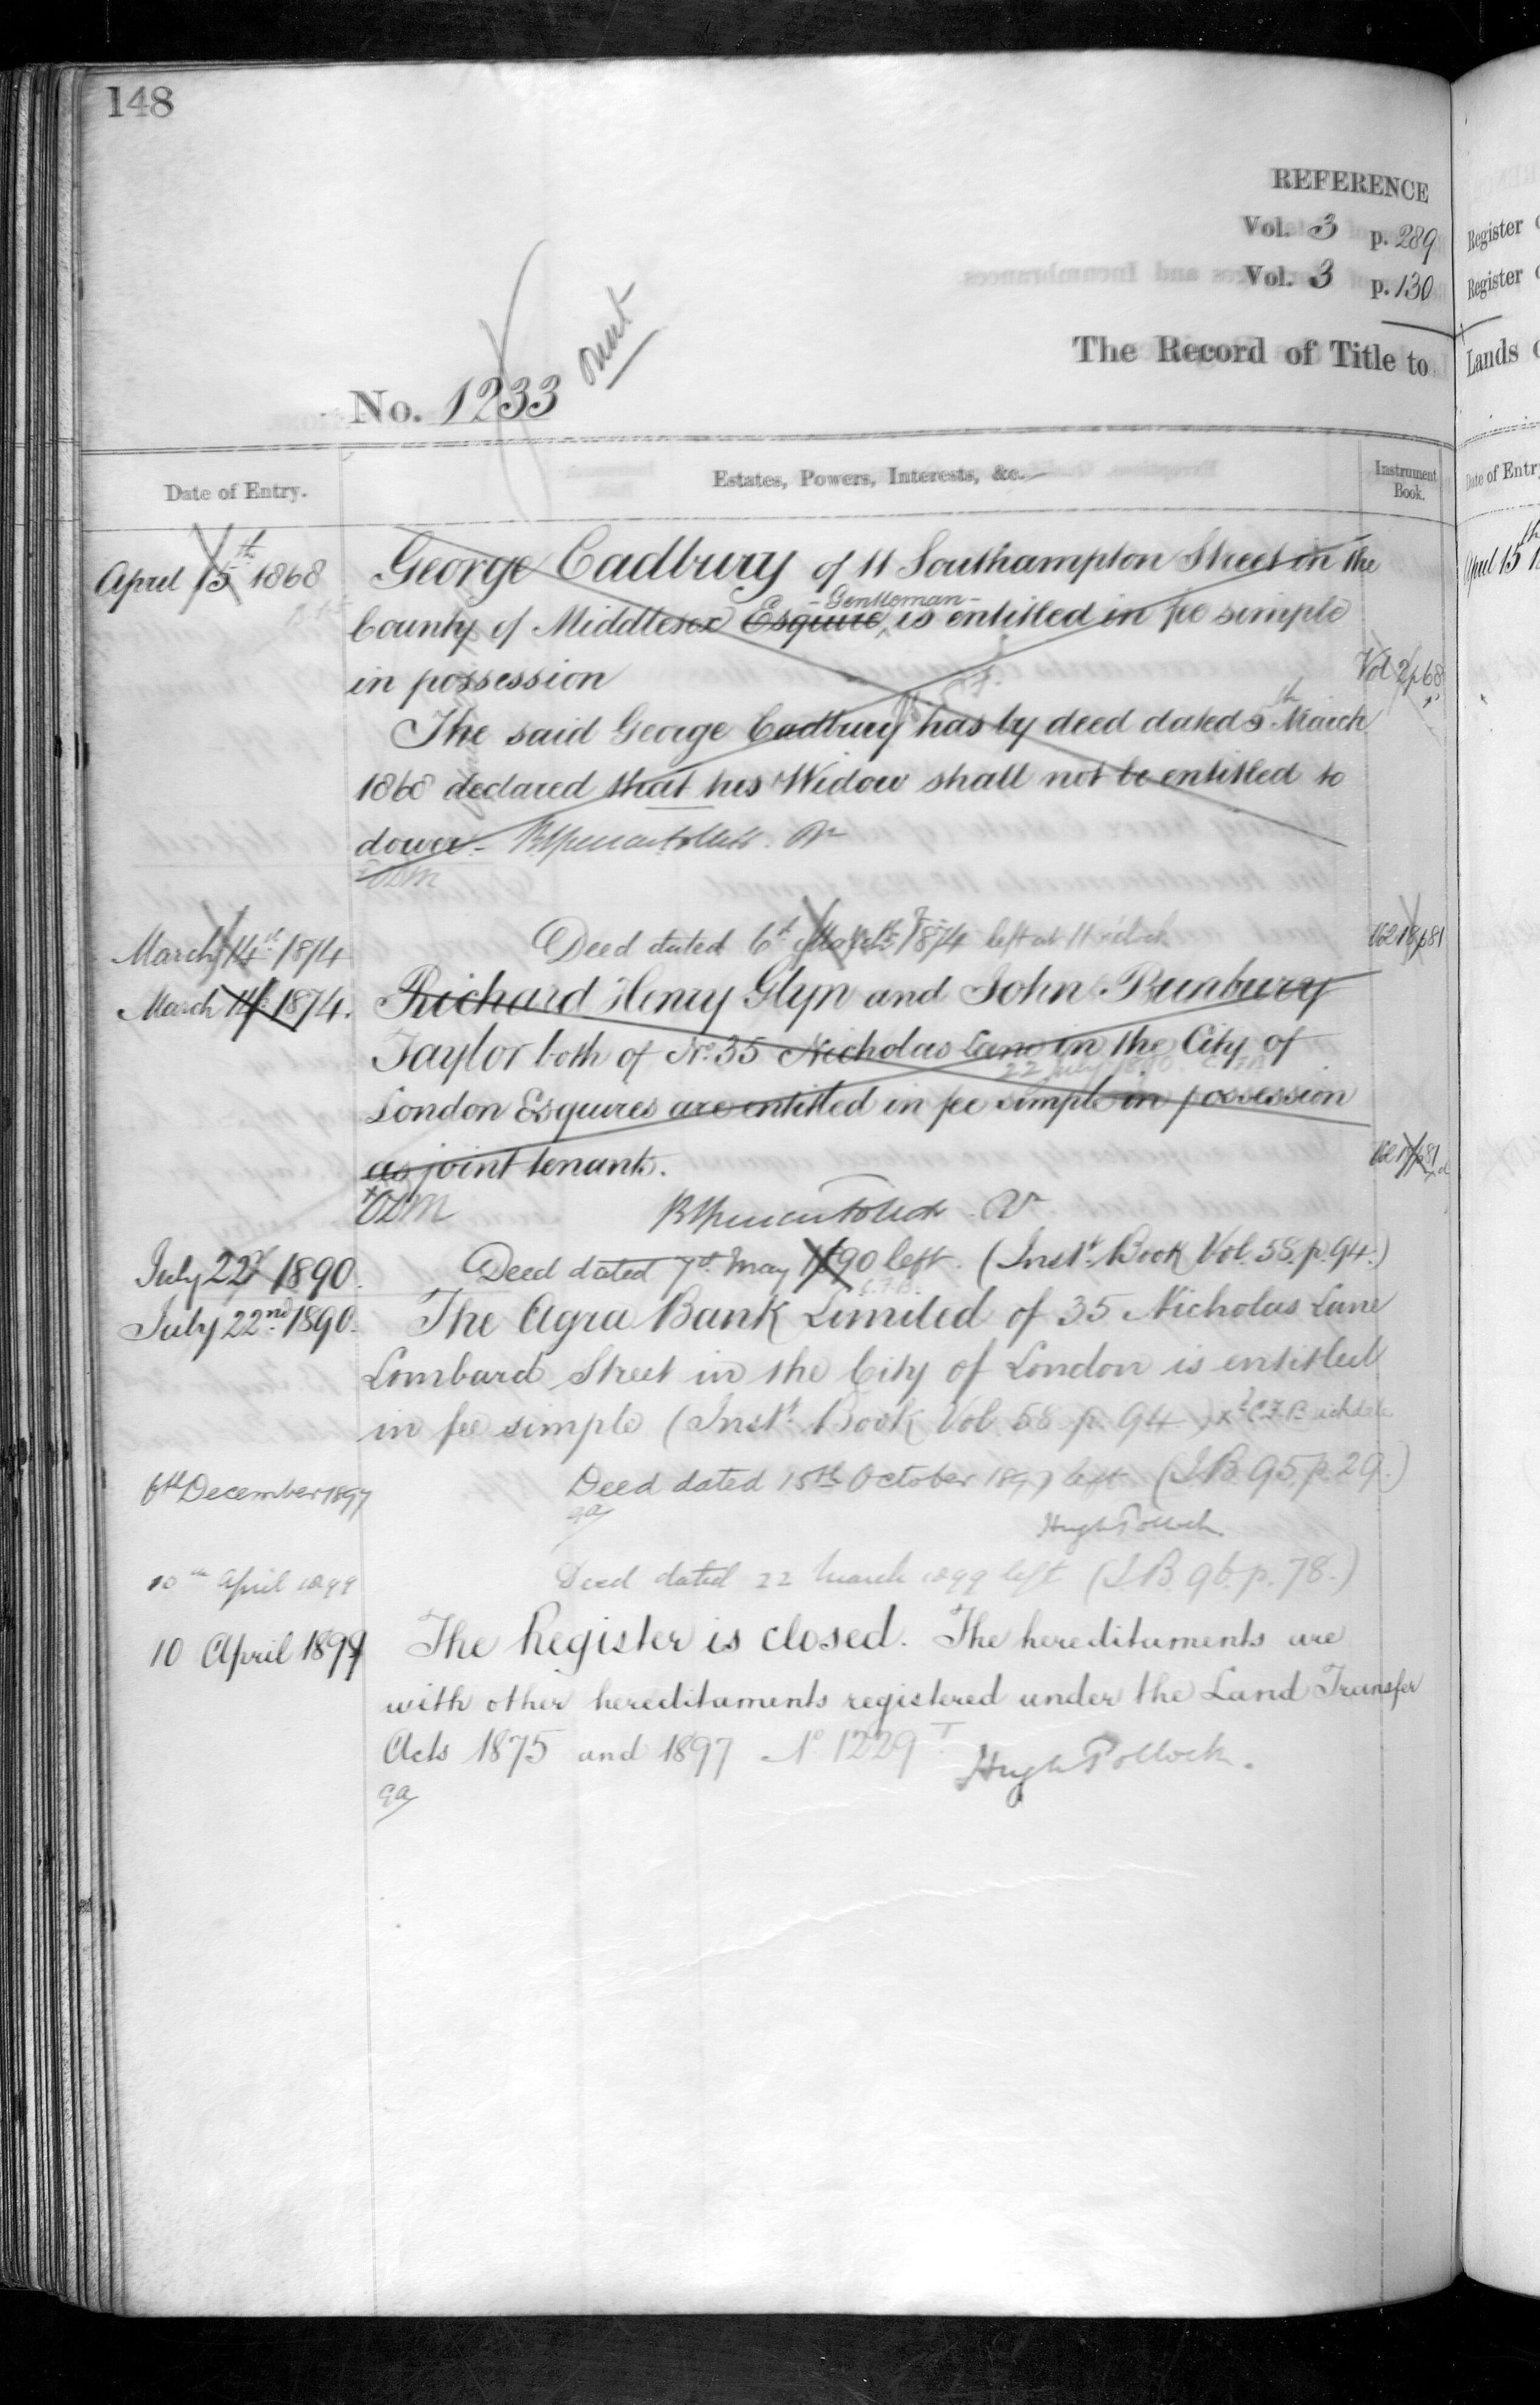 148
REFERENCE
Vol. 3 p. 289
Vol. 3 p. 130
The Record of Title to
No. 1233
Date of Entry.
Estates, Powers, Interests, &c.
Instrument Book.
April 15th 1868 George Cadbury of 11 Southampton Street in the
-Gentleman-
County of Middlesex Esquire, is entitled in fee simple
in possession Vol 2 p 68
The said George Cadbury has by deed dated 5th March
1868 declared that his Widow shall not be entitled to
dower
March 14th 1874 Deed dated 6th March 1874 left at 11 o'clock Vol 18 p 81
March 14 1874. Richard Henry Glyn and John Bunbury
Taylor both of No. 35 Nicholas Lane in the City of
22 July 1890
London Esquires are entitled in fee simple in possession
as joint tenants. p 81
July 22 1890. Deed dated 7th May 1890 left. (Inst. Book Vol. 58. p. 94.)
July 22nd 1890. The Agra Bank Limited of 35 Nicholas Lane
Lombard Street in the City of London is entitled
in fee simple (Inst. Book Vol 58 p. 94)
6th December 1897 Deed dated 15th October 1897 left (I.B. 95. p. 29.)
Hugh Pollock
10th April 1899 Deed dated 22 March 1899 left (I.B. 96. p. 78.)
10 April 1899 The Register is closed. The hereditaments are
with other hereditaments registered under the Land Transfer
Acts 1875 and 1897 No 1229
Hugh Pollock.
Register
Register
Lands
Date of Entry
April 15th